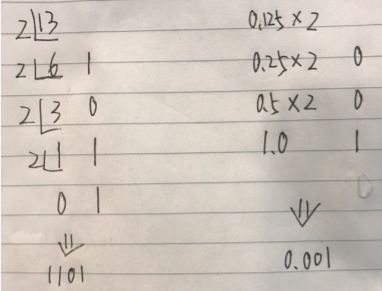 2 13
2 6 1
2 3 0
2 1 1
0 1
⇓
1101
0.125×2
0.25×2 0
0.5×2 0
1.0 1
⇓
0.001